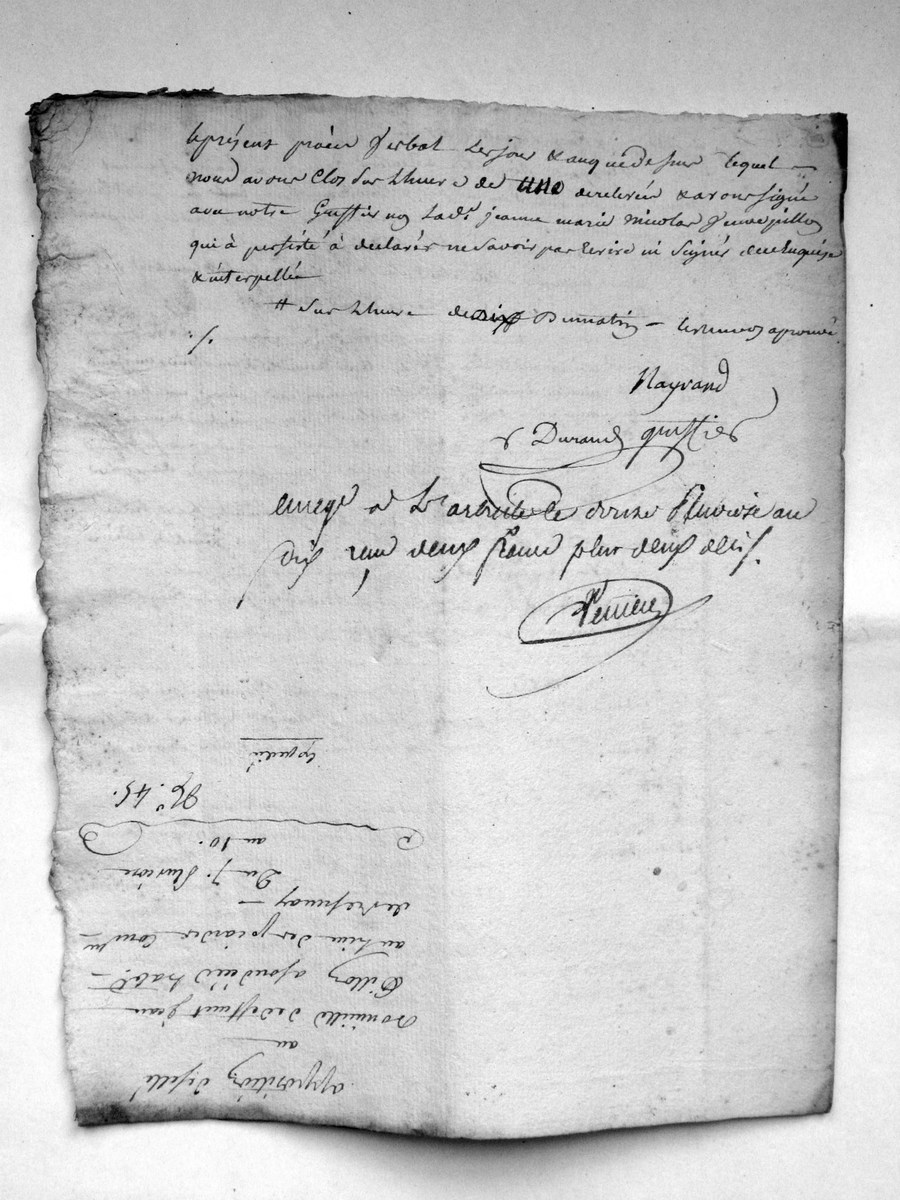 le présent procès Verbal les jour & an que dessus lequel
nous avons Clos sur Lheure de une de relevée & avons signé
avec notre Greffier non Lade. jeanne marie nicolas Veuve pillon
qui à persisté à déclarér ne Savoir pas Ecrire ni Signér de ce Enquise
& interpellée
# Sur Lheure de dix Du matin — approuvé
./.
Nayrand
Durand greffier
enregé a le douze Pluviose an
dix reçu deux franc plus deux décis.
Perriere
apposition scellé
au
Domicille de deffunt jean
Pillon a son déscés habt.
au lieu des picardes Comm.
de trefunay —
Du 7. Pluviose
an 10.
No. 45.
Expedié